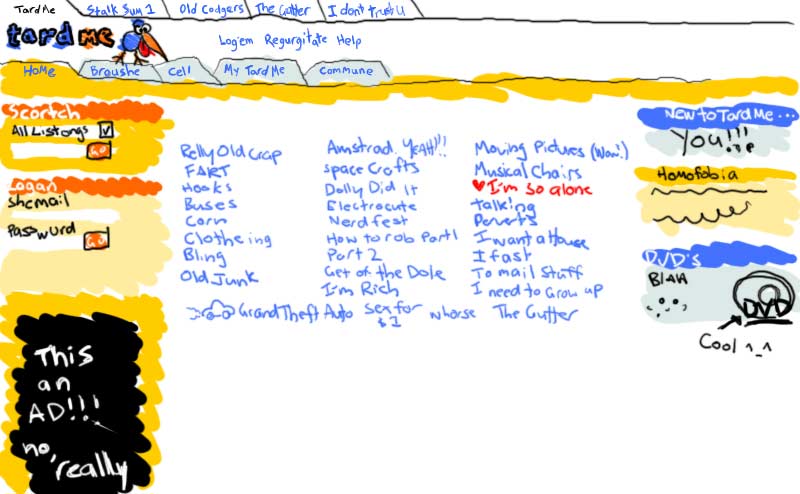 TardMe Stalk Sum 1 Old Codgers The Gutter I don't trust U
tardme
Log'em Regurgitate Help
Home Broushe Cell My TardMe Commune
Scortch
All Listongs V
GO
Logan
Shemail
Passwurd
GO
This
an
AD!!!
no,
really
Relly Old Crap
FART
Hooks
Buses
Corn
Clotheing
Bling
Old Junk
Grand Theft Auto
Amstrad. YEAH!!!
Space Crafts
Dolly Did It
Electrocute
Nerdfest
How to rob Part 1
Part 2
Get of the Dole
I'm Rich
Sex for
$1
Moving Pictures (Wow!)
Musical Chairs
I'm so alone
Talking
Perverts
I want a House
I fast
To mail Stuff
I need to Grow up
whorse
The Gutter
New to TardMe...
YOU!!!
Homofobia
DVD's
BLAH
DVD
Cool ^_^